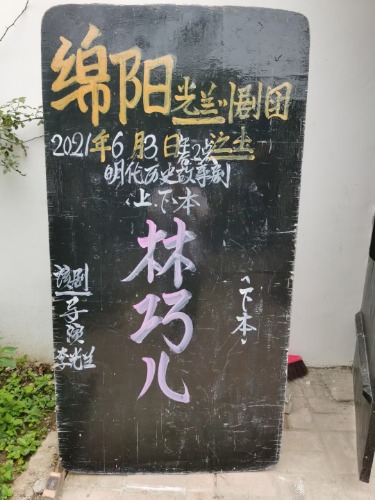 绵阳光兰川剧团
2021年6月3日午2点演出
明代历史故事剧
(上.下本
林巧儿
(下本)
该剧
导演
李光兰